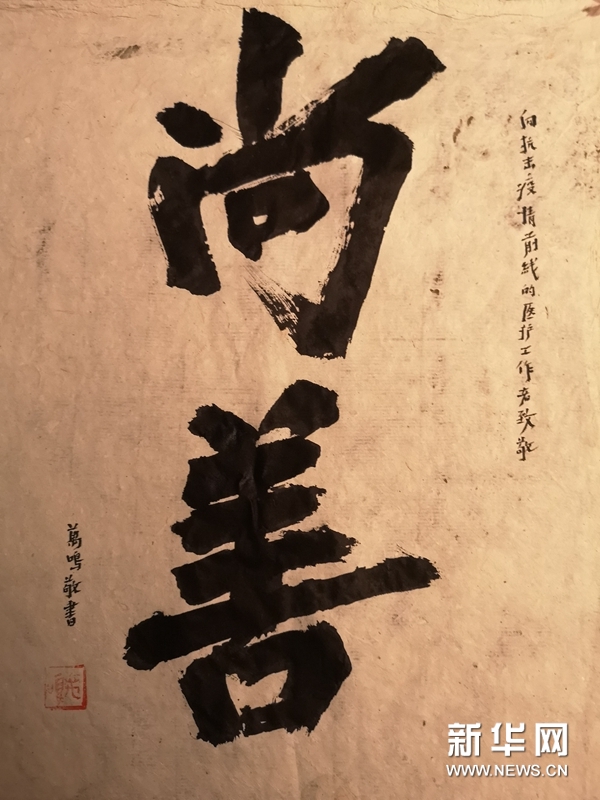 尚善
向抗击疫情前线的医护工作者致敬
萬鸣敬書
新华网
WWW.NEWS.CN